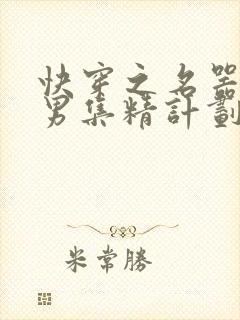 快穿之名器
男集精計劃
米常勝